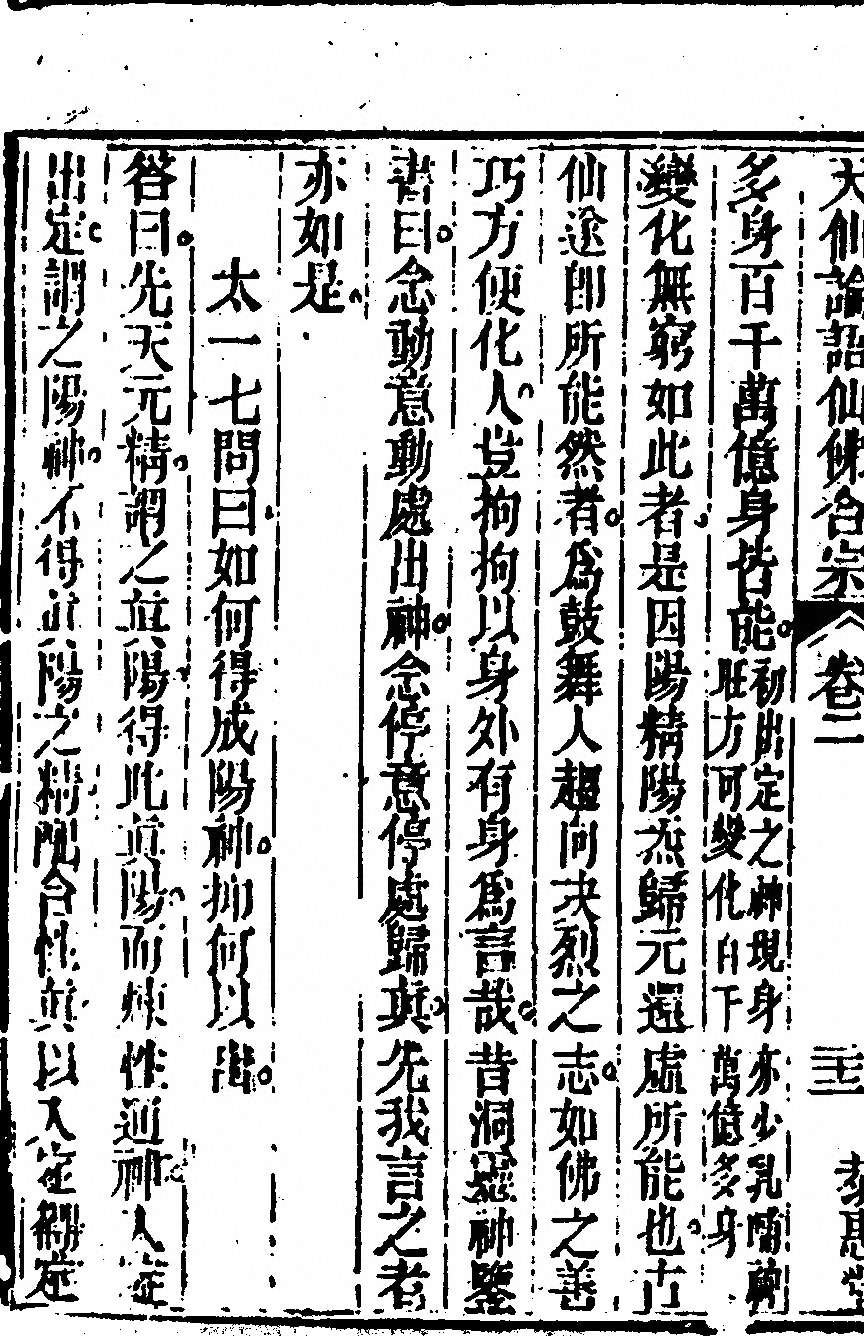 天仙論語仙佛合宗 卷二
多身百千萬億身皆能。初出定之神現身亦少乳哺神旺方可變化自千萬億多身
變化無窮如此者是因陽精陽炁歸元還虛所能也古
仙途即所能然者。爲鼓舞人趨向決烈之志。如佛之善
巧方便化人。豈拘拘以身外有身爲言哉。昔洞靈神鑒
書曰。念動意動處出神。念停意停處歸真。先我言之者
亦如是。
太一七問曰如何得成陽神。抑何以出。
答曰。先天元精。謂之真陽得此真陽。而煉性通神。入定
出定。謂之陽神。不得真陽之精配合性真以入定觀定